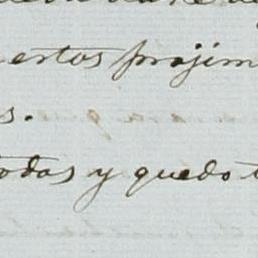 ertos projim
s.
todas y quedo t